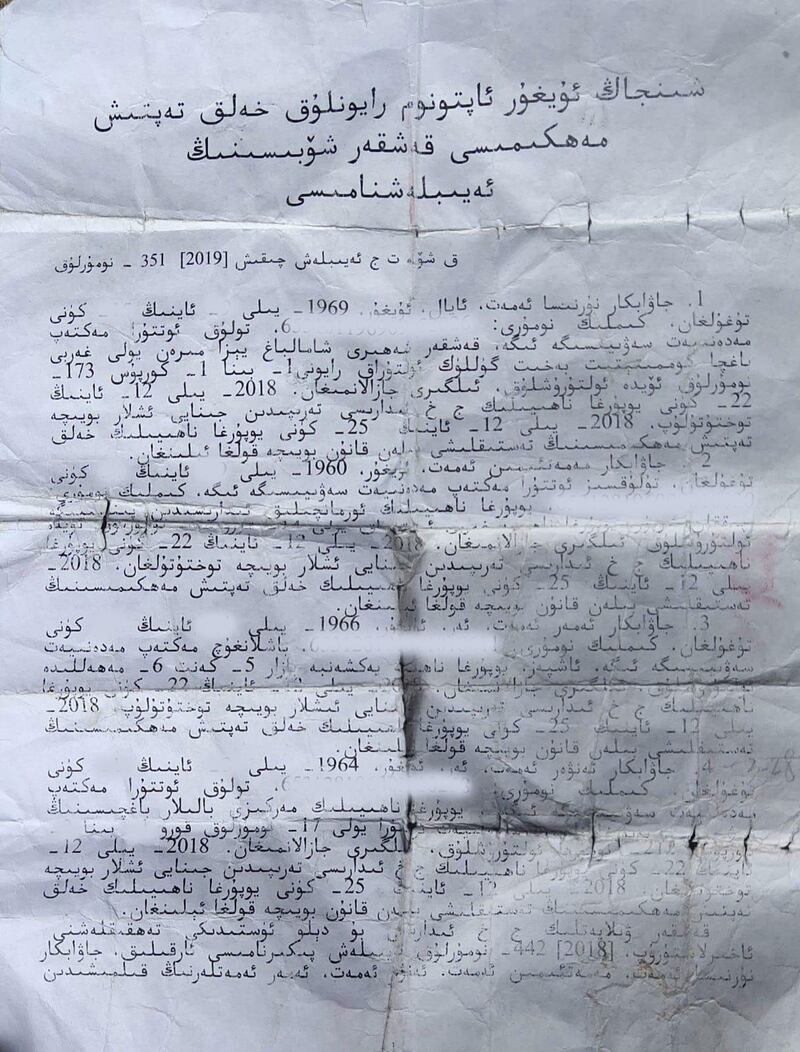 شىنجاڭ ئۇيغۇر ئاپتونوم رايونلۇق خەلق تەپتىش
مەھكىمىسى قەشقەر شۆبىسىنىڭ
ئەيىبلەشنامىسى
ق شۆ ت ج ئەيىبلەش چىقىش [2019] 351 ـ نومۇرلۇق
1. جاۋابكار نۇرنىسا ئەمەت، ئايال، ئۇيغۇر، 1969ـ يىلى ـ ئاينىڭ كۈنى
تۇغۇلغان. كىملىك نومۇرى: تولۇق ئوتتۇرا مەكتەپ
مەدەنىيەت سەۋىيىسىگە ئىگە. قەشقەر شەھىرى شامالباغ يېزا يولى غەربى
باغچا بەخىت گۈللۈك ئولتۇراق رايونى 1ـ بىنا 1ـ كورپۇس 173ـ
نومۇرلۇق ئۆيدە ئولتۇرۇشلۇق. ئىلگىرى جازالانمىغان. 2018ـ يىلى 12ـ ئاينىڭ
22ـ كۈنى يوپۇرغا ناھىيىلىك ج خ ئىدارىسى تەرىپىدىن جىنايى ئىشلار بويىچە
توختۇتۇلۇپ، 2018ـ يىلى 12ـ ئاينىڭ 25ـ كۈنى يوپۇرغا ناھىيىلىك خەلق
تەپتىش مەھكىمىسىنىڭ تەستىقلىشى بىلەن قانۇن بويىچە قولغا ئېلىنغان.
2. جاۋابكار ئەمەت، ئۇيغۇر، 1960ـ يىلى ئاينىڭ كۈنى
تۇغۇلغان. تولۇقسىز ئوتتۇرا مەكتەپ مەدەنىيەت سەۋىيىسىگە ئىگە. كىملىك نومۇرى:
يوپۇرغا ناھىيىلىك ئورمانچىلىق ئىدارىسىدىن
ئولتۇرۇشلۇق. ئىلگىرى جازالانمىغان. 2018ـ يىلى 12ـ ئاينىڭ 22ـ كۈنى يوپۇرغا
ناھىيىلىك ج خ ئىدارىسى تەرىپىدىن جىنايى ئىشلار بويىچە توختۇتۇلغان. 2018ـ
يىلى 12ـ ئاينىڭ 25ـ كۈنى يوپۇرغا ناھىيىلىك خەلق تەپتىش مەھكىمىسىنىڭ
تەستىقلىشى بىلەن قانۇن بويىچە قولغا ئېلىنغان.
3. جاۋابكار ئەمەر ئەمەت، ئەر، ئۇيغۇر، 1966ـ يىلى ـ ئاينىڭ كۈنى
تۇغۇلغان. كىملىك نومۇرى: باشلانغۇچ مەكتەپ مەدەنىيەت
سەۋىيىسىگە ئىگە. ئاشپەز. يوپۇرغا ناھىيە يەكشەنبە بازار 5ـ كەنت 6ـ مەھەللىدە
ئىلگىرى 2018ـ يىلى 12ـ ئاينىڭ 22ـ كۈنى يوپۇرغا
ناھىيىلىك ج خ ئىدارىسى تەرىپىدىن جىنايى ئىشلار بويىچە توختۇتۇلۇپ، 2018ـ
يىلى 12ـ ئاينىڭ 25ـ كۈنى يوپۇرغا ناھىيىلىك خەلق تەپتىش مەھكىمىسىنىڭ
تەستىقلىشى بىلەن قانۇن بويىچە قولغا ئېلىنغان.
4. جاۋابكار ئەنۋەر ئەمەت، ئەر، ئۇيغۇر، 1964ـ يىلى ئاينىڭ كۈنى
تۇغۇلغان. كىملىك نومۇرى: تولۇق ئوتتۇرا مەكتەپ
مەدەنىيەت يوپۇرغا ناھىيىلىك مەركىزىي بالىلار باغچىسىنىڭ
يولى 17ـ نومۇرلۇق قورۇ بىنا
ئولتۇرۇشلۇق. ئىلگىرى جازالانمىغان. 2018ـ يىلى 12ـ
ئاينىڭ 22ـ كۈنى يوپۇرغا ناھىيىلىك ج خ ئىدارىسى تەرىپىدىن جىنايى ئىشلار بويىچە
توختۇتۇلغان. 2018ـ يىلى 12ـ ئاينىڭ 25ـ كۈنى يوپۇرغا ناھىيىلىك خەلق
تەپتىش مەھكىمىسىنىڭ تەستىقلىشى بىلەن قانۇن بويىچە قولغا ئېلىنغان.
قەشقەر ۋىلايەتلىك ج خ ئىدارىسى بۇ دېلو ئۈستىدىكى تەھقىقلەشنى
ئاخىرلاشتۇرۇپ، [2018] 442ـ نومۇرلۇق ئەيىبلەش پىكىرنامىسى ئارقىلىق، جاۋابكار
نۇرنىسا ئەمەت، ئەمەت، ئەنۋەر ئەمەت، ئەمەر ئەمەتلەرنىڭ قىلمىشىدىن